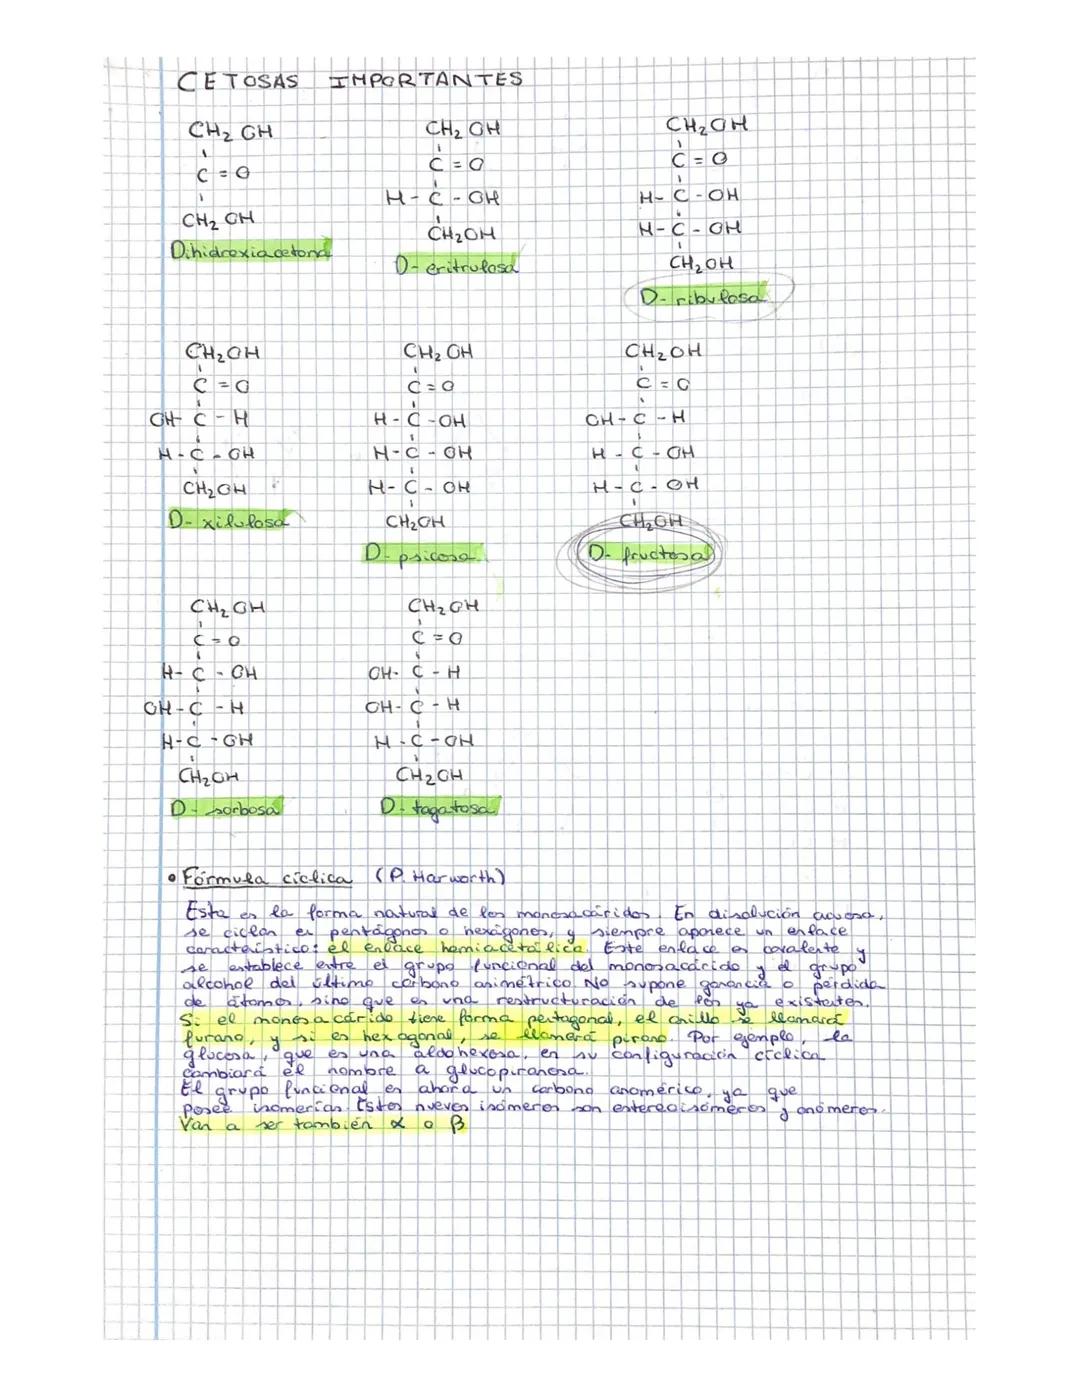 CETOSAS IMPORTANTES
CH2OH CH2OH CH2OH
C = O C = O C = O
CH2OH H - C - OH H - C - OH
Dihidroxiacetona CH2OH H - C - OH
D- eritrulosa CH2OH
D- ribulosa
CH2OH CH2OH CH2OH
C = O C = O C = O
OH - C - H H - C - OH OH - C - H
H - C - OH H - C - OH H - C - OH
CH2OH H - C - OH H - C - OH
D- xilulosa CH2OH CH2OH
D- psicosa D- fructosa
CH2OH CH2OH
C = O C = O
H - C - OH OH - C - H
OH - C - H OH - C - H
H - C - OH H - C - OH
CH2OH CH2OH
D- sorbosa D- tagatosa
• Fórmula cíclica (P. Harworth)
Esta es la forma natural de los monosacáridos. En disolución acuosa,
se ciclan en pentágonos o hexágonos, y siempre aparece un enlace
característico: el enlace hemiacetálico. Este enlace es covalente y
se establece entre el grupo funcional del monosacárido y el grupo
alcohol del último carbono asimétrico. No supone ganancia o pérdida
de átomos, sino que es una restructuración de los ya existentes.
Si el monosacárido tiene forma pentagonal, el anillo se llamará
furano, y si es hexagonal, se llamará pirano. Por ejemplo, la
glucosa, que es una aldohexosa, en su configuración cíclica
cambiará el nombre a glucopiranosa.
El grupo funcional es ahora un carbono anomérico, ya que
posee isomerías. Estos nuevos isómeros son estereoisómeros y anómeros.
Van a ser también α o β